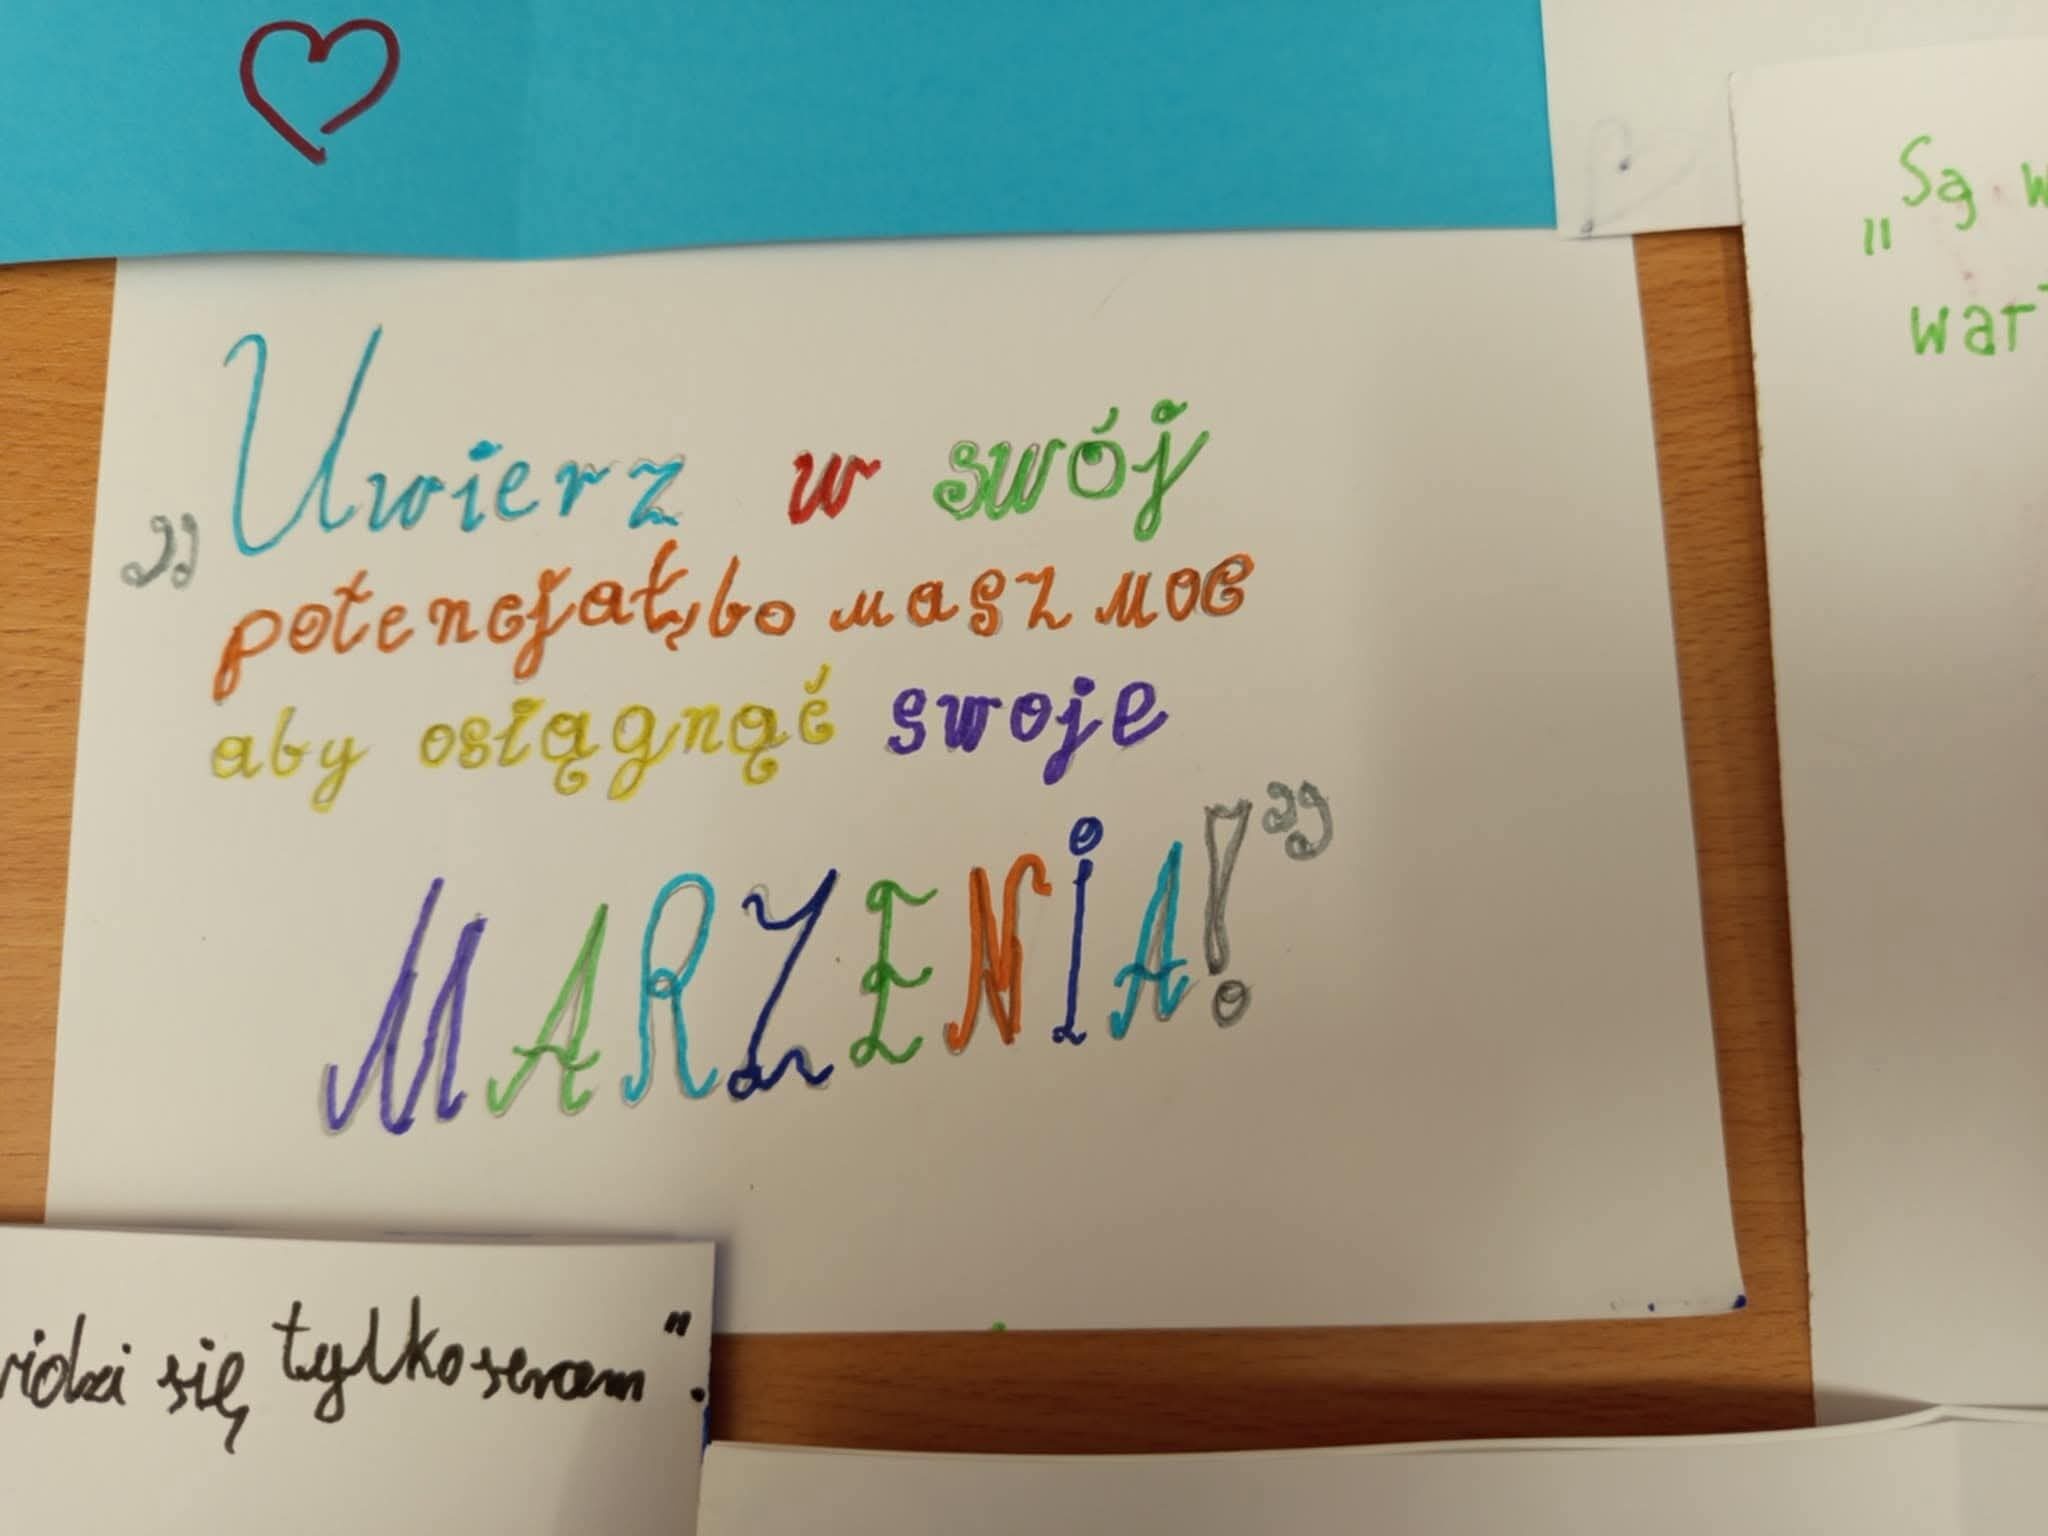 „Uwierz w swój
potencjał, bo masz moc
aby osiągnąć swoje
MARZENiA!”
„Są
się tylko sercem".